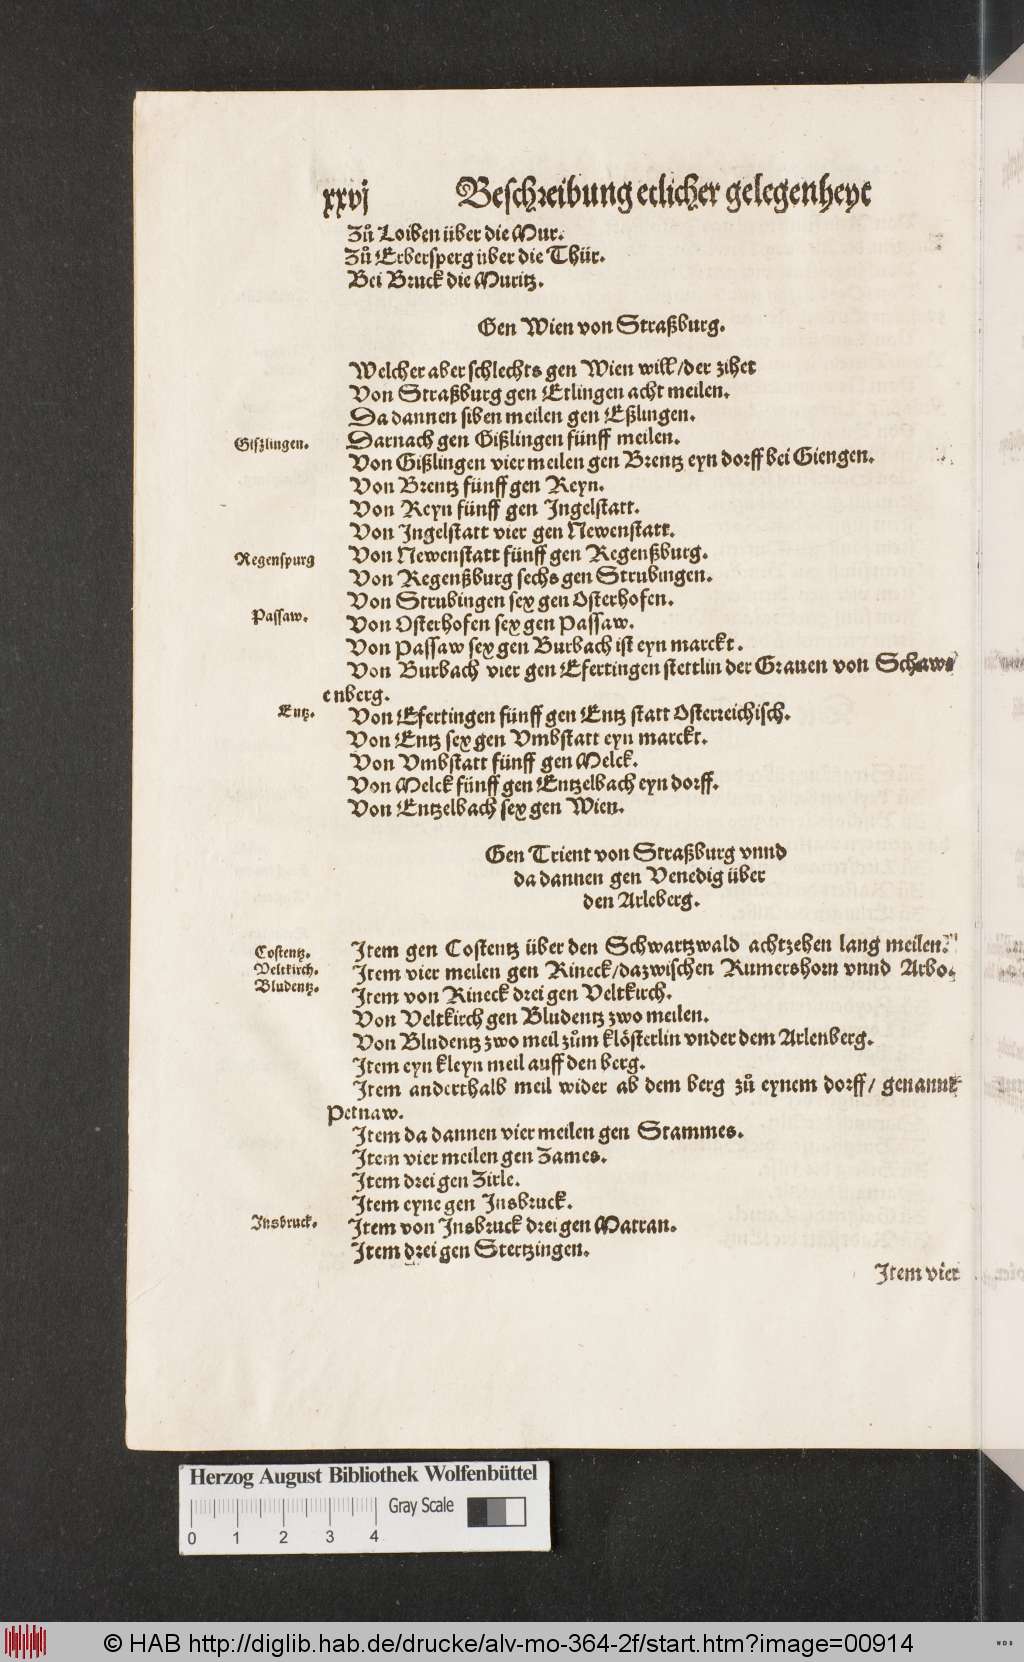 xxvj Beschreibung etlicher gelegenheyt
Zů Loiben über die Mur.
Zů Erbersperg über die Thür.
Bei Bruck die Muritz.
Gen Wien von Straßburg.
Welcher aber schlechts gen Wien will/der zihet
Von Straßburg gen Etlingen acht meilen.
Da dannen siben meilen gen Eßlingen.
Gißlingen. Darnach gen Gißlingen fünff meilen.
Von Gißlingen vier meilen gen Brentz eyn dorff bei Giengen.
Von Brentz fünff gen Reyn.
Von Reyn fünff gen Ingelstatt.
Von Ingelstatt vier gen Newenstatt.
Regenspurg Von Newenstatt fünff gen Regenßburg.
Von Regenßburg sechs gen Strubingen.
Von Strubingen sex gen Osterhofen.
Passaw. Von Osterhofen sex gen Passaw.
Von Passaw sex gen Burbach ist eyn marckt.
Von Burbach vier gen Efertingen stettlin der Grauen von Schaw⸗
enberg.
Entz. Von Efertingen fünff gen Entz statt Osterreichisch.
Von Entz sex gen Vmbstatt eyn marckt.
Von Vmbstatt fünff gen Melck.
Von Melck fünff gen Entzelbach eyn dorff.
Von Entzelbach sex gen Wien.
Gen Trient von Straßburg vnnd
da dannen gen Venedig über
den Arleberg.
Costentz. Item gen Costentz über den Schwartzwald achtzehen lang meilen.
Veltkirch. Item vier meilen gen Rineck/dazwischen Rumershorn vnnd Arbo.
Bludentz. Item von Rineck drei gen Veltkirch.
Von Veltkirch gen Bludentz zwo meilen.
Von Bludentz zwo meil zům klösterlin vnder dem Arlenberg.
Item eyn kleyn meil auff den berg.
Item anderthalb meil wider ab dem berg zů eynem dorff/ genannt
Petnaw.
Item da dannen vier meilen gen Stammes.
Item vier meilen gen Zames.
Item drei gen Zirle.
Item eyne gen Insbruck.
Insbruck. Item von Insbruck drei gen Matran.
Item drei gen Stertzingen.
Item vier
Herzog August Bibliothek Wolfenbüttel
Gray Scale
0 1 2 3 4
© HAB http://diglib.hab.de/drucke/alv-mo-364-2f/start.htm?image=00914